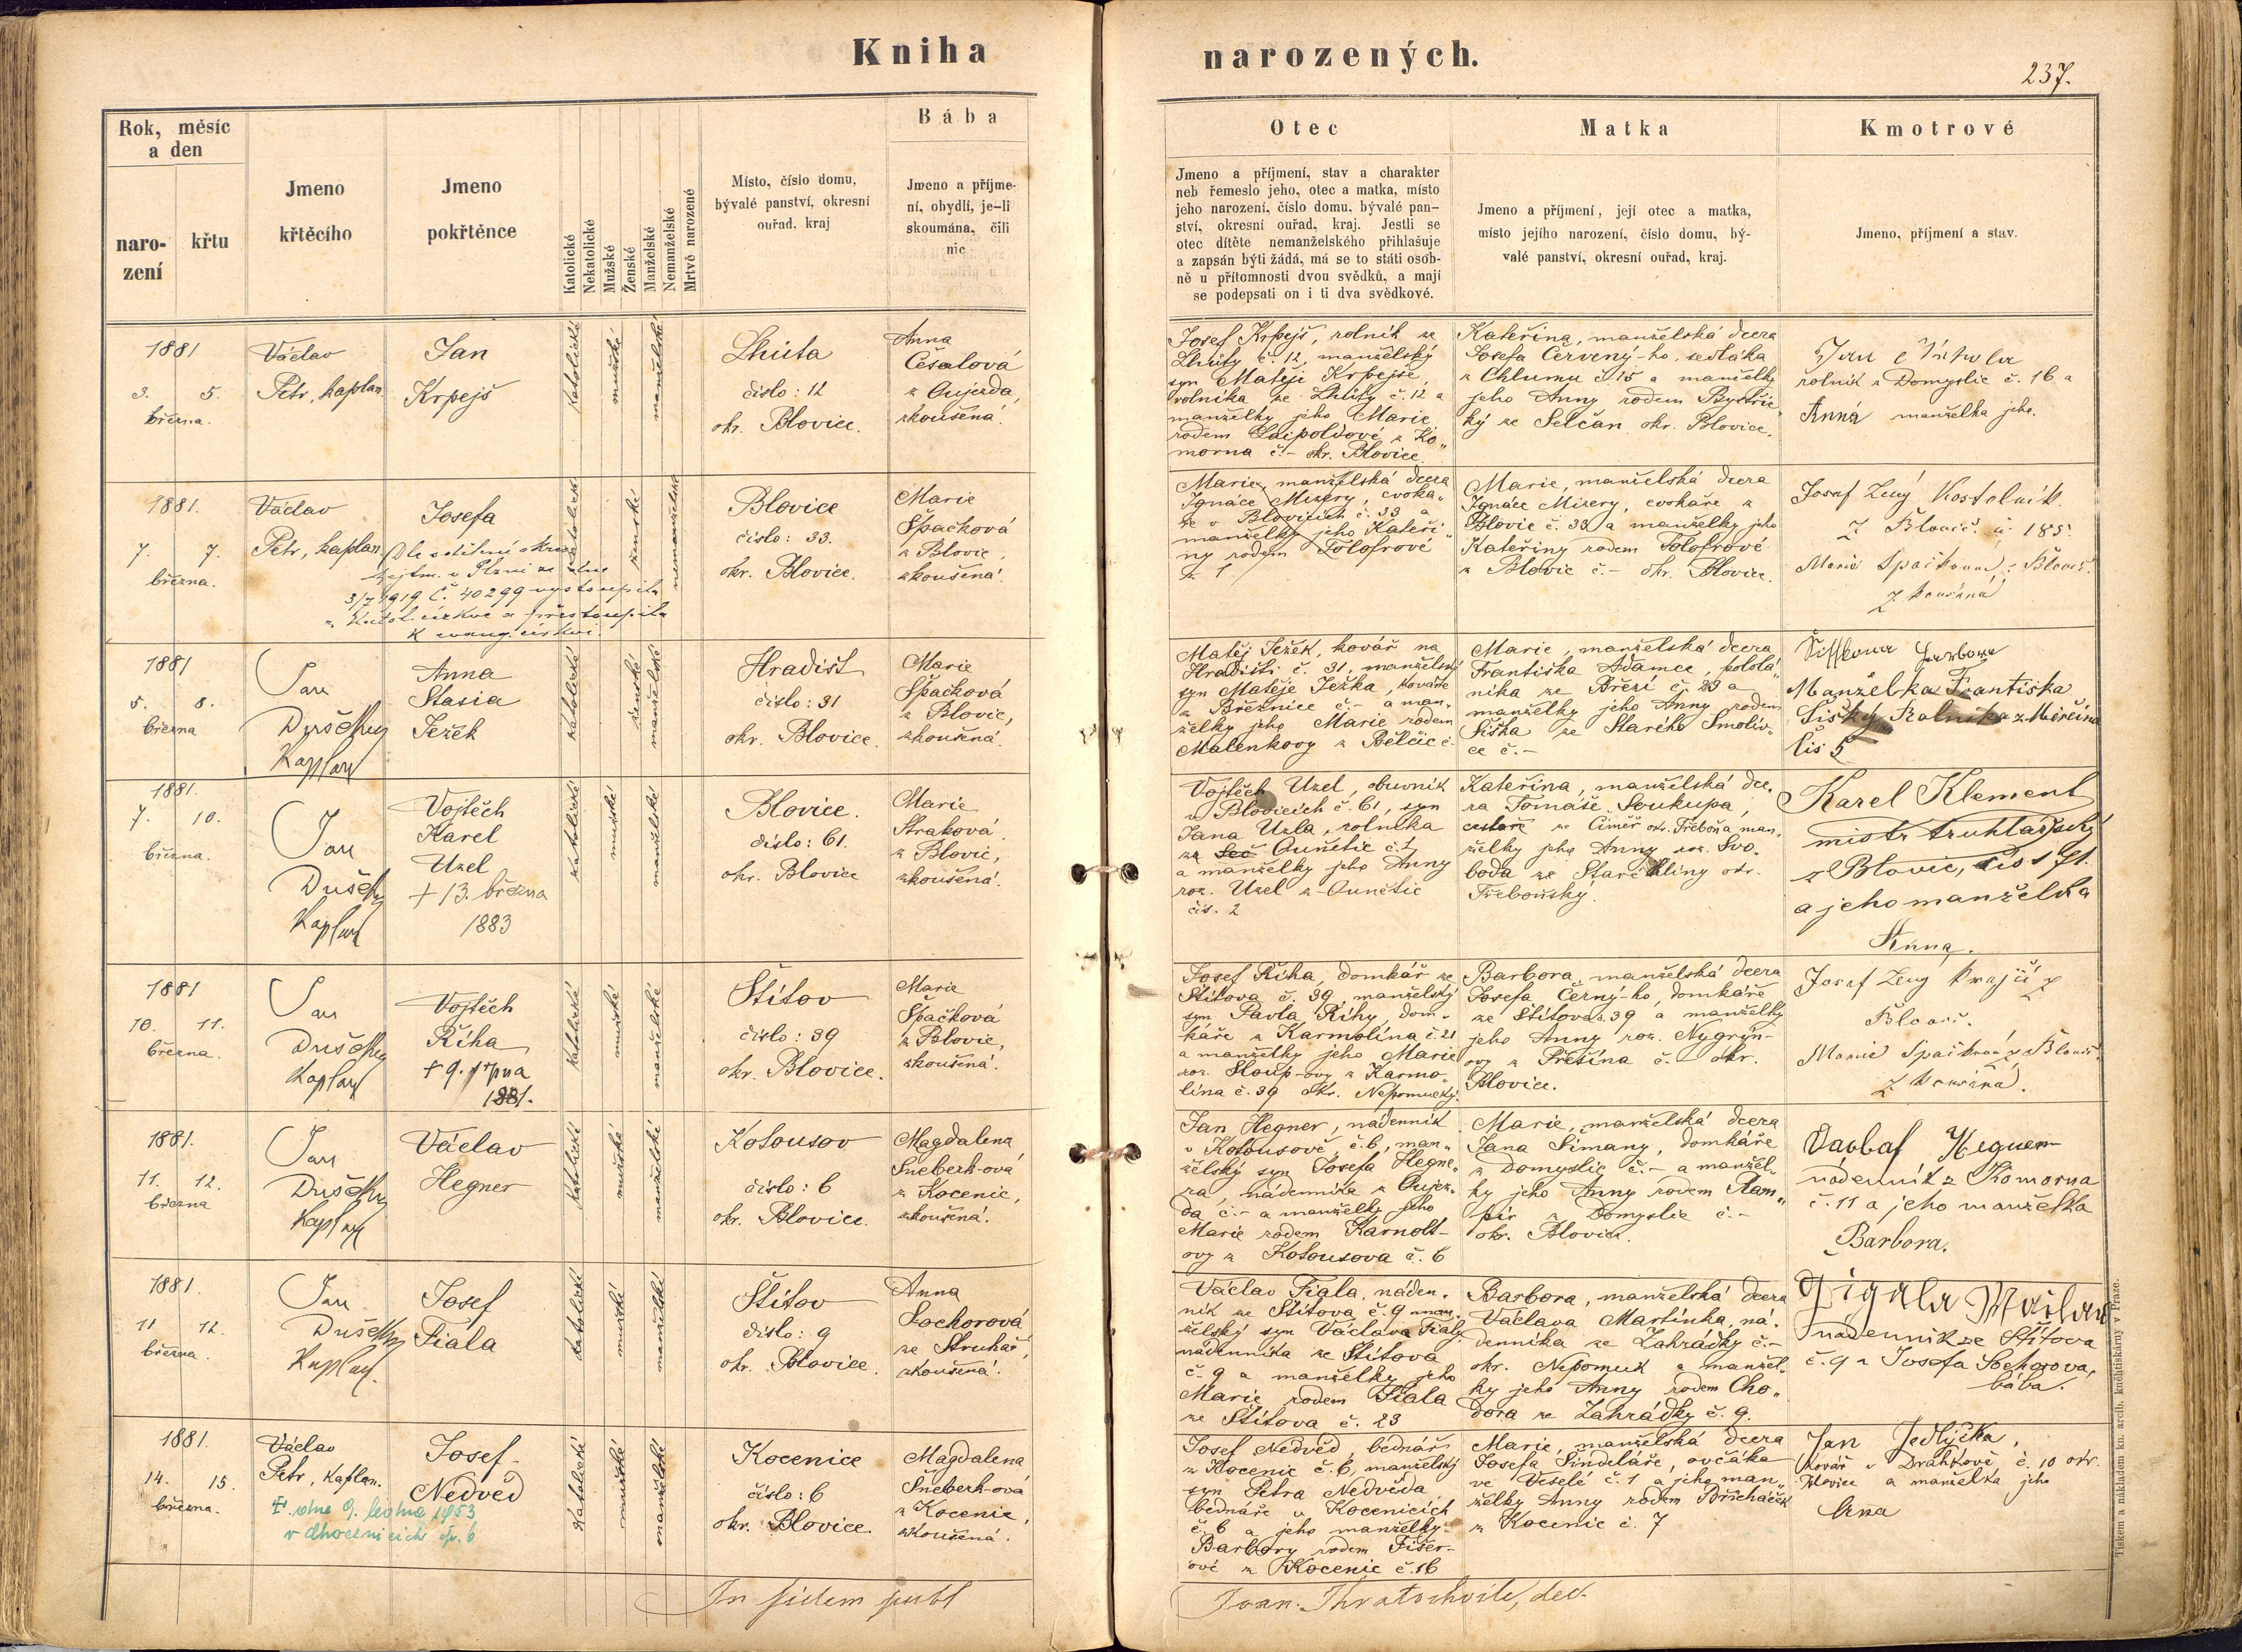 Kniha narozených.
237.
Rok, měsíc
a den
naro-
zení
křtu
Jmeno
křtěcího
Jmeno
pokřtěnce
Katolické
Nekatolické
Mužské
Ženské
Manželské
Nemanželské
Mrtvě narozené
Místo, číslo domu,
bývalé panství, okresní
ouřad, kraj
Bába
Jmeno a příjme-
ní, obydlí, je-li
skoumána, čili
nic
Otec
Jmeno a příjmení, stav a charakter
neb řemeslo jeho, otec a matka, místo
jeho narození, číslo domu, bývalé pan-
ství, okresní ouřad, kraj. Jestli se
otec dítěte nemanželského přihlašuje
a zapsán býti žádá, má se to státi osob-
ně u přítomnosti dvou svědků, a mají
se podepsati on i ti dva svědkové.
Matka
Jmeno a příjmení, její otec a matka,
místo jejího narození, číslo domu, bý-
valé panství, okresní ouřad, kraj.
Kmotrové
Jmeno, příjmení a stav.
1881
3. 5.
března.
Václav
Petr, kaplan
Jan
Krpejš
katolické
mužské
manželské
Lhůta
číslo: 12
okr. Blovice.
Anna
Češalová
z Oujezda,
zkoušená.
Josef Krpejš, rolník ze
Lhůty č. 12, manželský
syn Matěje Krpejše,
rolníka ze Lhůty č. 12 a
manželky jeho Marie
rodem Leipoldové z Ko„
morna č.- okr. Blovice.
Kateřina, manželská dcera
Josefa Červený-ho, sedláka
z Chlumu č. 15 a manželky
jeho Anny rodem Bystřic„
ký ze Selčan okr. Blovice.
Jan
rolník z Domyslic č. 16 a
Anna manželka jeho.
1881.
7. 7.
března.
Václav
Petr, kaplan
Josefa
Dle sdělení okres.
hejtm. v Plzni ze dne
3/7 1919 č. 40299 vystoupila
z katol. církve a přestoupila
k evang. církvi.
katolické
ženské
nemanželské
Blovice
číslo: 33.
okr. Blovice.
Marie
Špačková
z Blovic,
zkoušená.
Marie, manželská dcera
Ignáce Mizery, cvoka„
ře v Blovicích č. 33 a
manželky jeho Kateři„
ny rodem Folofrové
Marie, manželská dcera
Ignáce Mizery, cvokaře z
Blovic č. 33 a manželky jeho
Kateřiny rodem Folofrové
z Blovic č.- okr. Blovice.
Josef Zený Kostelník
z Blovic č. 185.
Marie Špačková z Blovic.
zkoušená
1881
5. 8.
března
Jan
Dušek
Kaplan
Anna
Stasia
Ježek
katolické
ženské
manželské
Hradišt
číslo: 31
okr. Blovice.
Marie
Špačková
z Blovic,
zkoušená.
Matěj Ježek, kovář na
Hradišti č. 31, manželský
syn Matěje Ježka, kováře
z Březnice č.- a man„
želky jeho Marie rodem
Malenkovy z Bělčic č-
Marie, manželská dcera
Františka Adamce, polola„
níka ze Březí č. 23 a
manželky jeho Anny rodem
Šiška ze Starého Smoliv„
ce č.-
Šiškova Barbora
Manželka Františka
Šišky Rolníka z Měrčína
čís 5
1881.
7. 10.
března.
Jan
Dušek
Kaplan
Vojtěch
Karel
Uzel
+ 13. března
1883
katolické
mužské
manželské
Blovice.
číslo: 61.
okr. Blovice
Marie
Straková
z Blovic,
zkoušená.
Vojtěch Uzel, obuvník
v Blovicích č. 61, syn
Jana Uzla, rolníka
ze Seč Ounětic č. 1
a manželky jeho Anny
roz. Uzel z Ounětic
čís. 2
Kateřina, manželská dce„
ra Tomáše Soukupa,
cestaře ze Ciměř okr. Třeboňa man„
želky jeho Anny roz. Svo„
boda ze Staré Hliny okr.
Třeboňský.
Karel Klement
mistr truhlářský
z Blovic, čis 171.
a jeho manželka
Anna.
1881
10. 11.
března.
Jan
Dušek
Kaplan
Vojtěch
Říha
+ 9. srpna
1881.
katolické
mužské
manželské
Štítov
číslo: 39
okr. Blovice.
Marie
Špačková
z Blovic,
zkoušená.
Josef Říha, domkář ze
Štítova č. 39, manželský
syn Pavla Říhy, dom„
káře z Karmolína č. 21
a manželky jeho Marie
roz. Sloup-ovy z Karmo„
lína č. 39 okr. Nepomucký.
Barbora, manželská dcera
Josefa Černý-ho, domkáře
ze Štítova č. 39 a manželky
jeho Anny roz. Nygrýn-
ovy z Přešína č.- okr.
Blovice.
Josef Zený krejčí z
Blovic.
Marie Špačková z Blovic
zkoušená.
1881.
11. 12.
března
Jan
Dušek
Kaplan
Václav
Hegner
katolické
mužské
manželské
Kotousov
číslo: 6
okr. Blovice.
Magdalena
Šneberk-ová
z Kocenic,
zkoušená.
Jan Hegner, nádenník
v Kotousově č. 6, man„
želský syn Josefa Hegne„
ra, nádenníka z Oujez„
da č.- a manželky jeho
Marie rodem Karnolt-
ovy z Kotousova č. 6
Marie, manželská dcera
Jana Šimany, domkáře
z Domyslic č.- a manžel„
ky jeho Anny rodem Ram„
pír z Domyslic č.-
okr. Blovice.
Václav Hegner
nádenník z Komorna
č. 11 a jeho manželka
Barbora.
1881.
11 12.
března.
Jan
Dušek
Kaplan.
Josef
Fiala
katolické
mužské
manželské
Štítov
číslo: 9
okr. Blovice.
Anna
Sochorová
ze Struhař,
zkoušená.
Václav Fiala, náden„
ník ze Štítova č. 9 man„
želský syn Václava Fialy
nádenníka ze Štítova
č. 9 a manželky jeho
Marie, rodem Fiala
ze Štítova č. 23
Barbora, manželská dcera
Václava Martínka, ná„
denníka ze Zahrádky č.-
okr. Nepomuk a manžel„
ky jeho Anny rodem Cho„
dora ze Zahrádky č. 9.
nádenník ze Štítova
č. 9 a Josefa Sochorova,
bába.
1881.
14. 15.
března.
Václav
Petr, kaplan.
Josef
Nedvěd
† dne 9. ledna 1953
v Chocenicích čp. 6
katolické
mužské
manželské
Kocenice
číslo: 6
okr. Blovice.
Magdalena
Šneberk-ová
z Kocenic,
zkoušená.
Josef Nedvěd, bednář
z Kocenic č. 6, manželský
syn Petra Nedvěda,
bednáře v Kocenicích
č. 6 a jeho manželky
Barbory rodem Fišer-
ové z Kocenic č. 16
Marie, manželská dcera
Josefa Šindeláře, ovčáka
ve Veselé č. 1 a jeho man„
želky Anny rodem Břicháček
z Kocenic č. 7
Jan Jedlička,
kovář v Drahkově č. 10 okr.
Blovice a manželka jeho
Anna
In fidem publ
Joan. Thratochvile, dec.
Tiskem a nákladem kn. arcib. knihtiskárny v Praze.